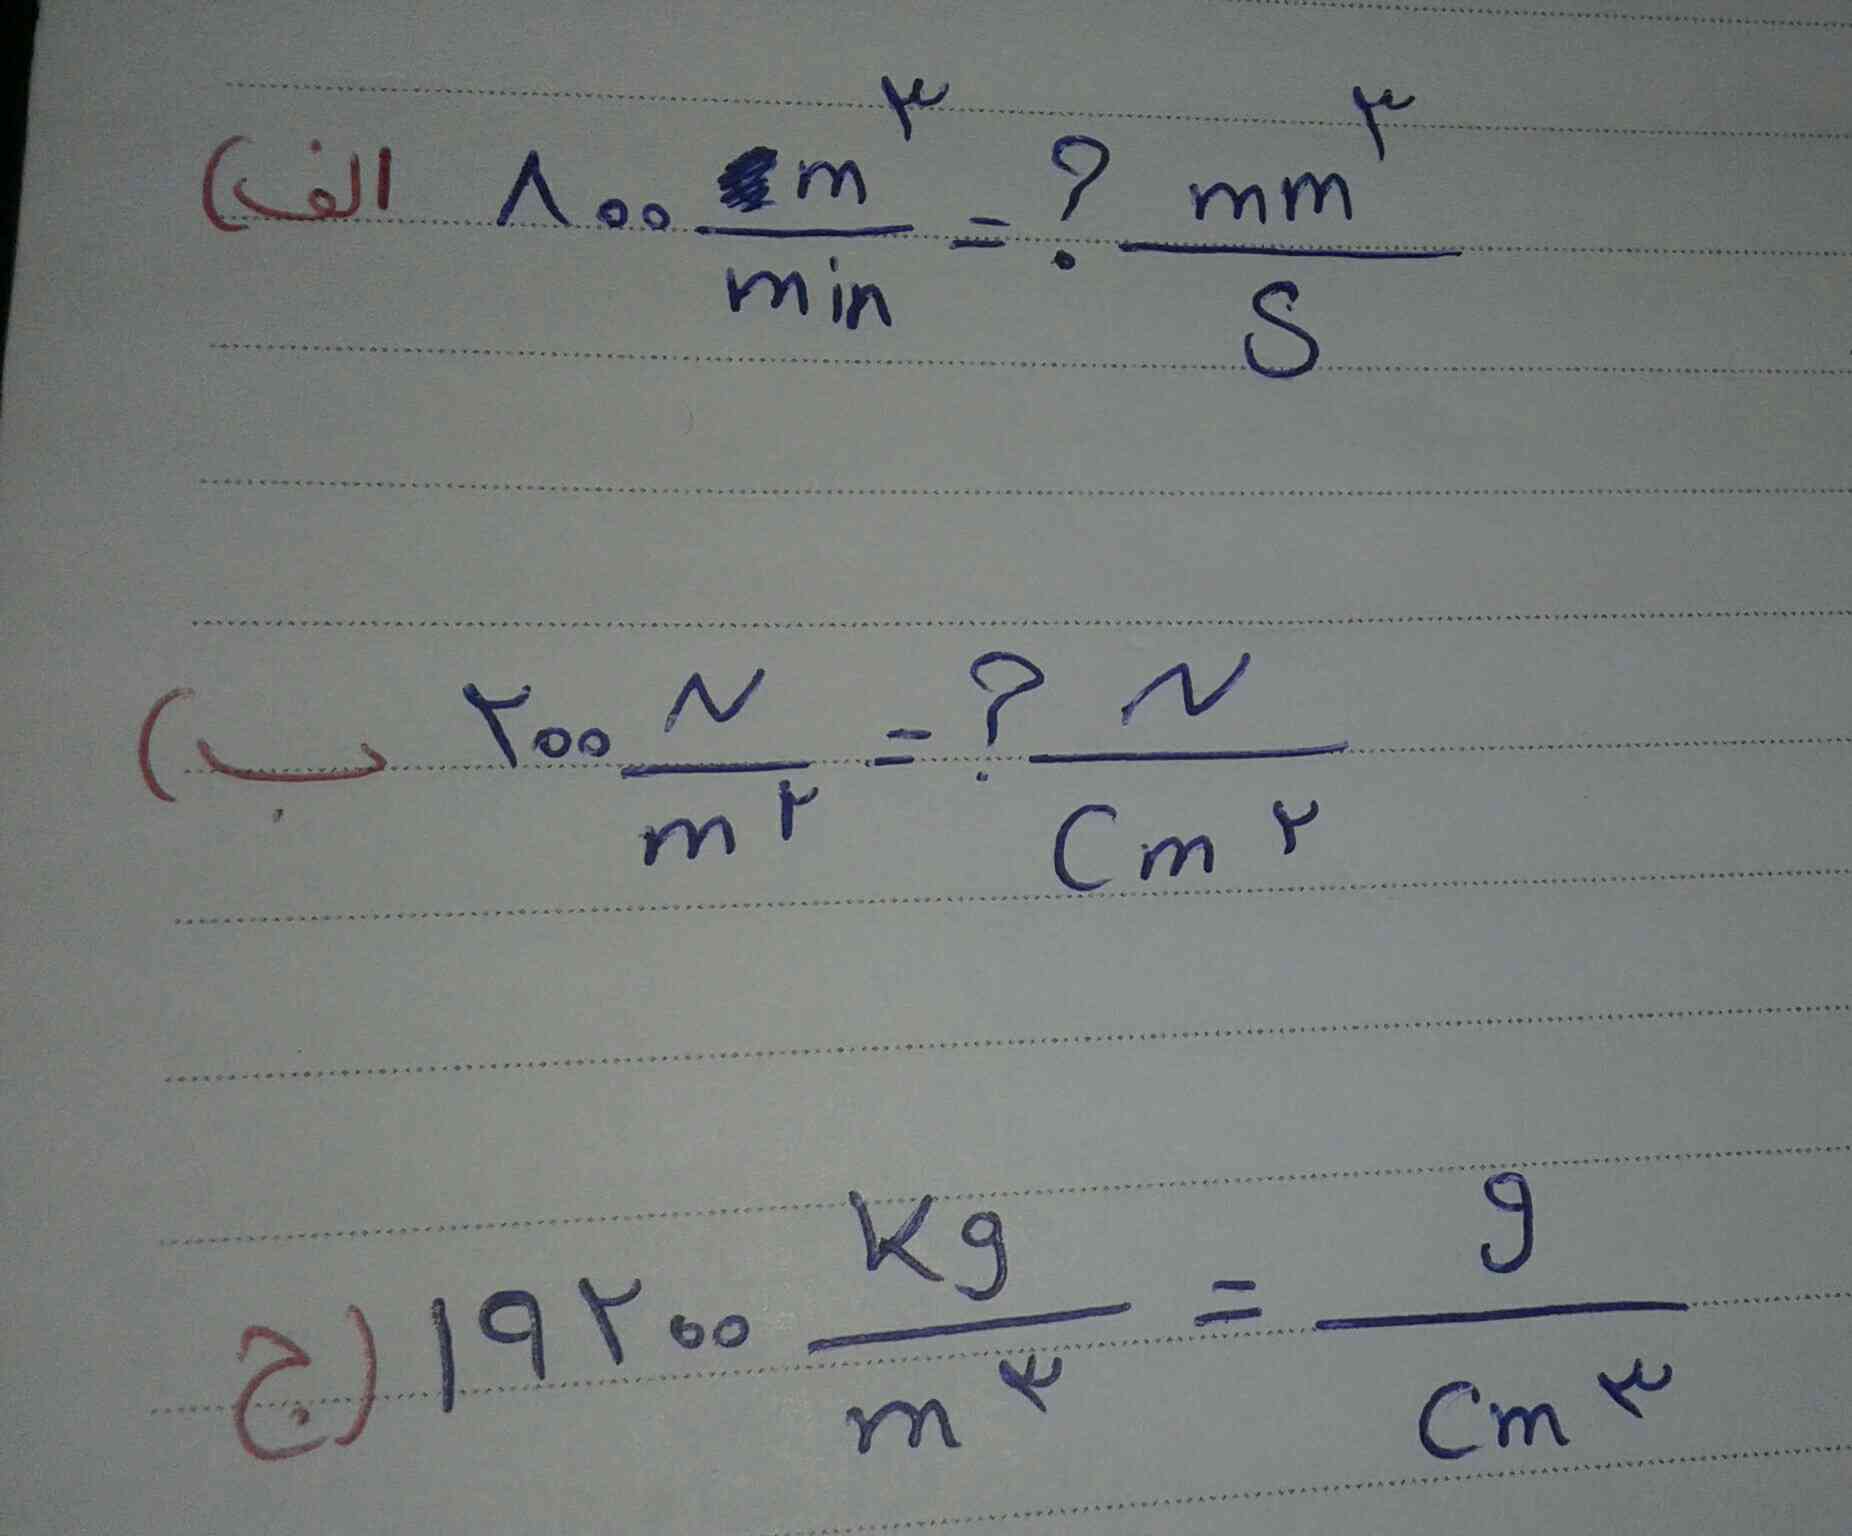 الف) ۸۰۰ m³/min = ? mm³/s
ب) ۲۰۰ N/m² = ? N/Cm²
ج) ۱۹۲۰۰ Kg/m³ = g/Cm³